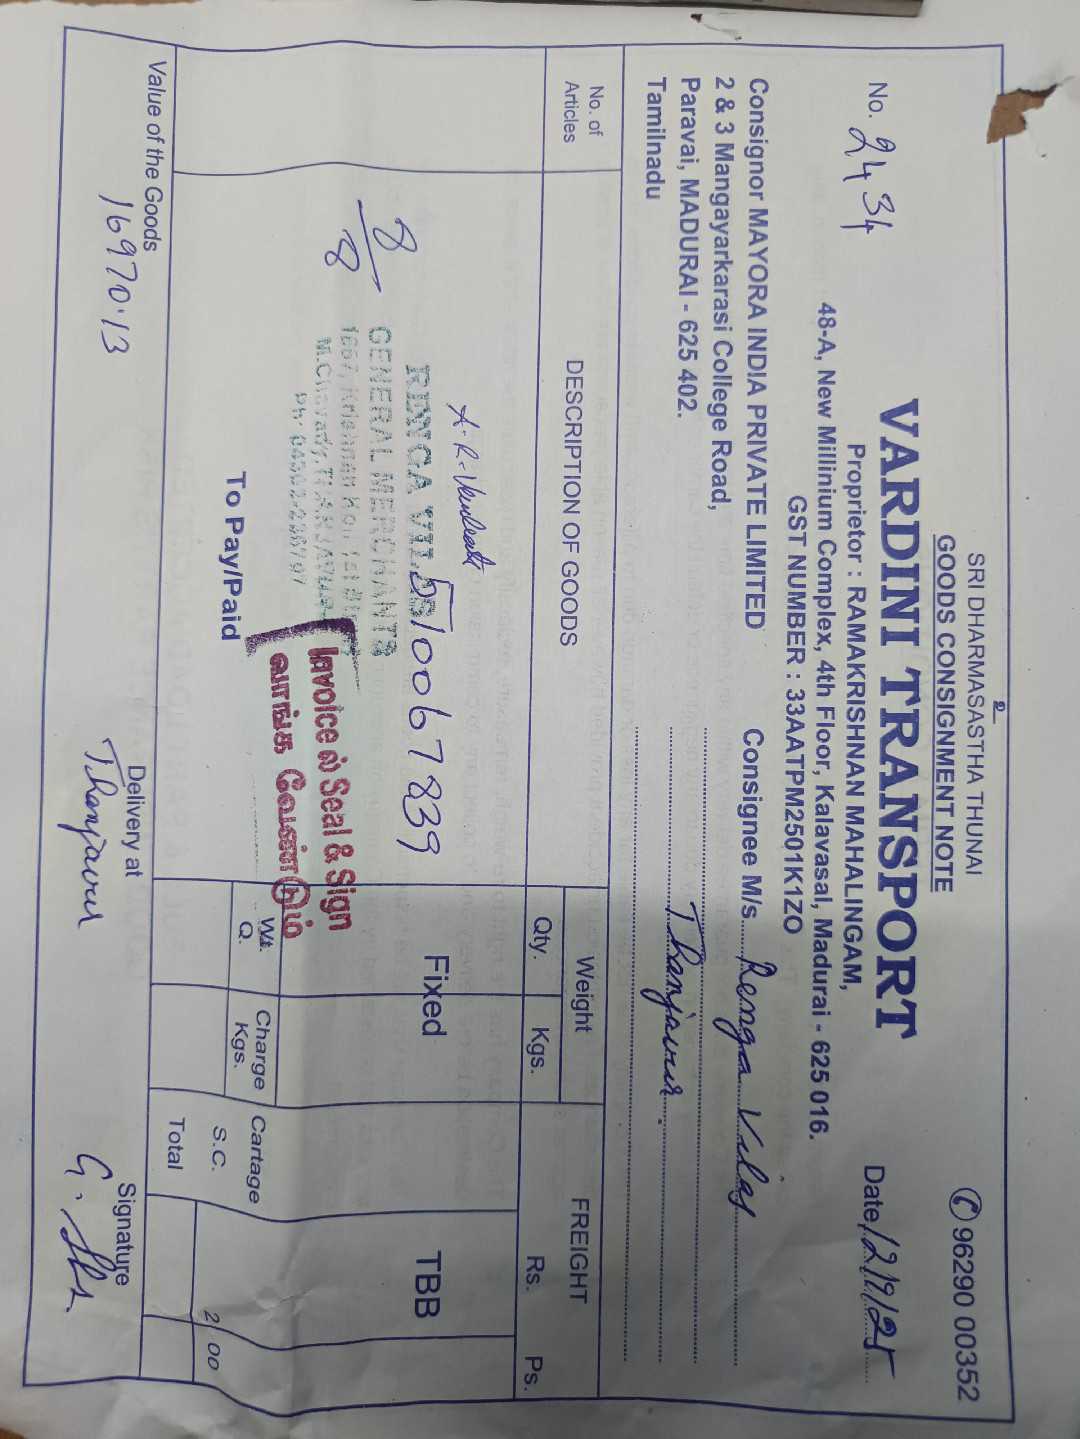 உ
SRI DHARMASASTHA THUNAI
GOODS CONSIGNMENT NOTE
✆ 96290 00352
VARDINI TRANSPORT
Proprietor : RAMAKRISHNAN MAHALINGAM,
No. 2434
Date 12/9/25
48-A, New Millinium Complex, 4th Floor, Kalavasal, Madurai - 625 016.
GST NUMBER : 33AATPM2501K1ZO
Consignor MAYORA INDIA PRIVATE LIMITED
2 & 3 Mangayarkarasi College Road,
Paravai, MADURAI - 625 402.
Tamilnadu
Consignee M/s. Renga Vilas
Thanjavur.
No. of Articles
DESCRIPTION OF GOODS
Weight
FREIGHT
Qty.
Kgs.
Rs.
Ps.
8/8
510067839
Fixed
TBB
RENGA VILAS
GENERAL MERCHANTS
Invoice ல் Seal & Sign
வாங்க வேண்டும்
To Pay/Paid
Wt. Q.
Charge Kgs.
Cartage
S.C.
2 00
Total
Value of the Goods
16970.13
Delivery at
Thanjavur
Signature